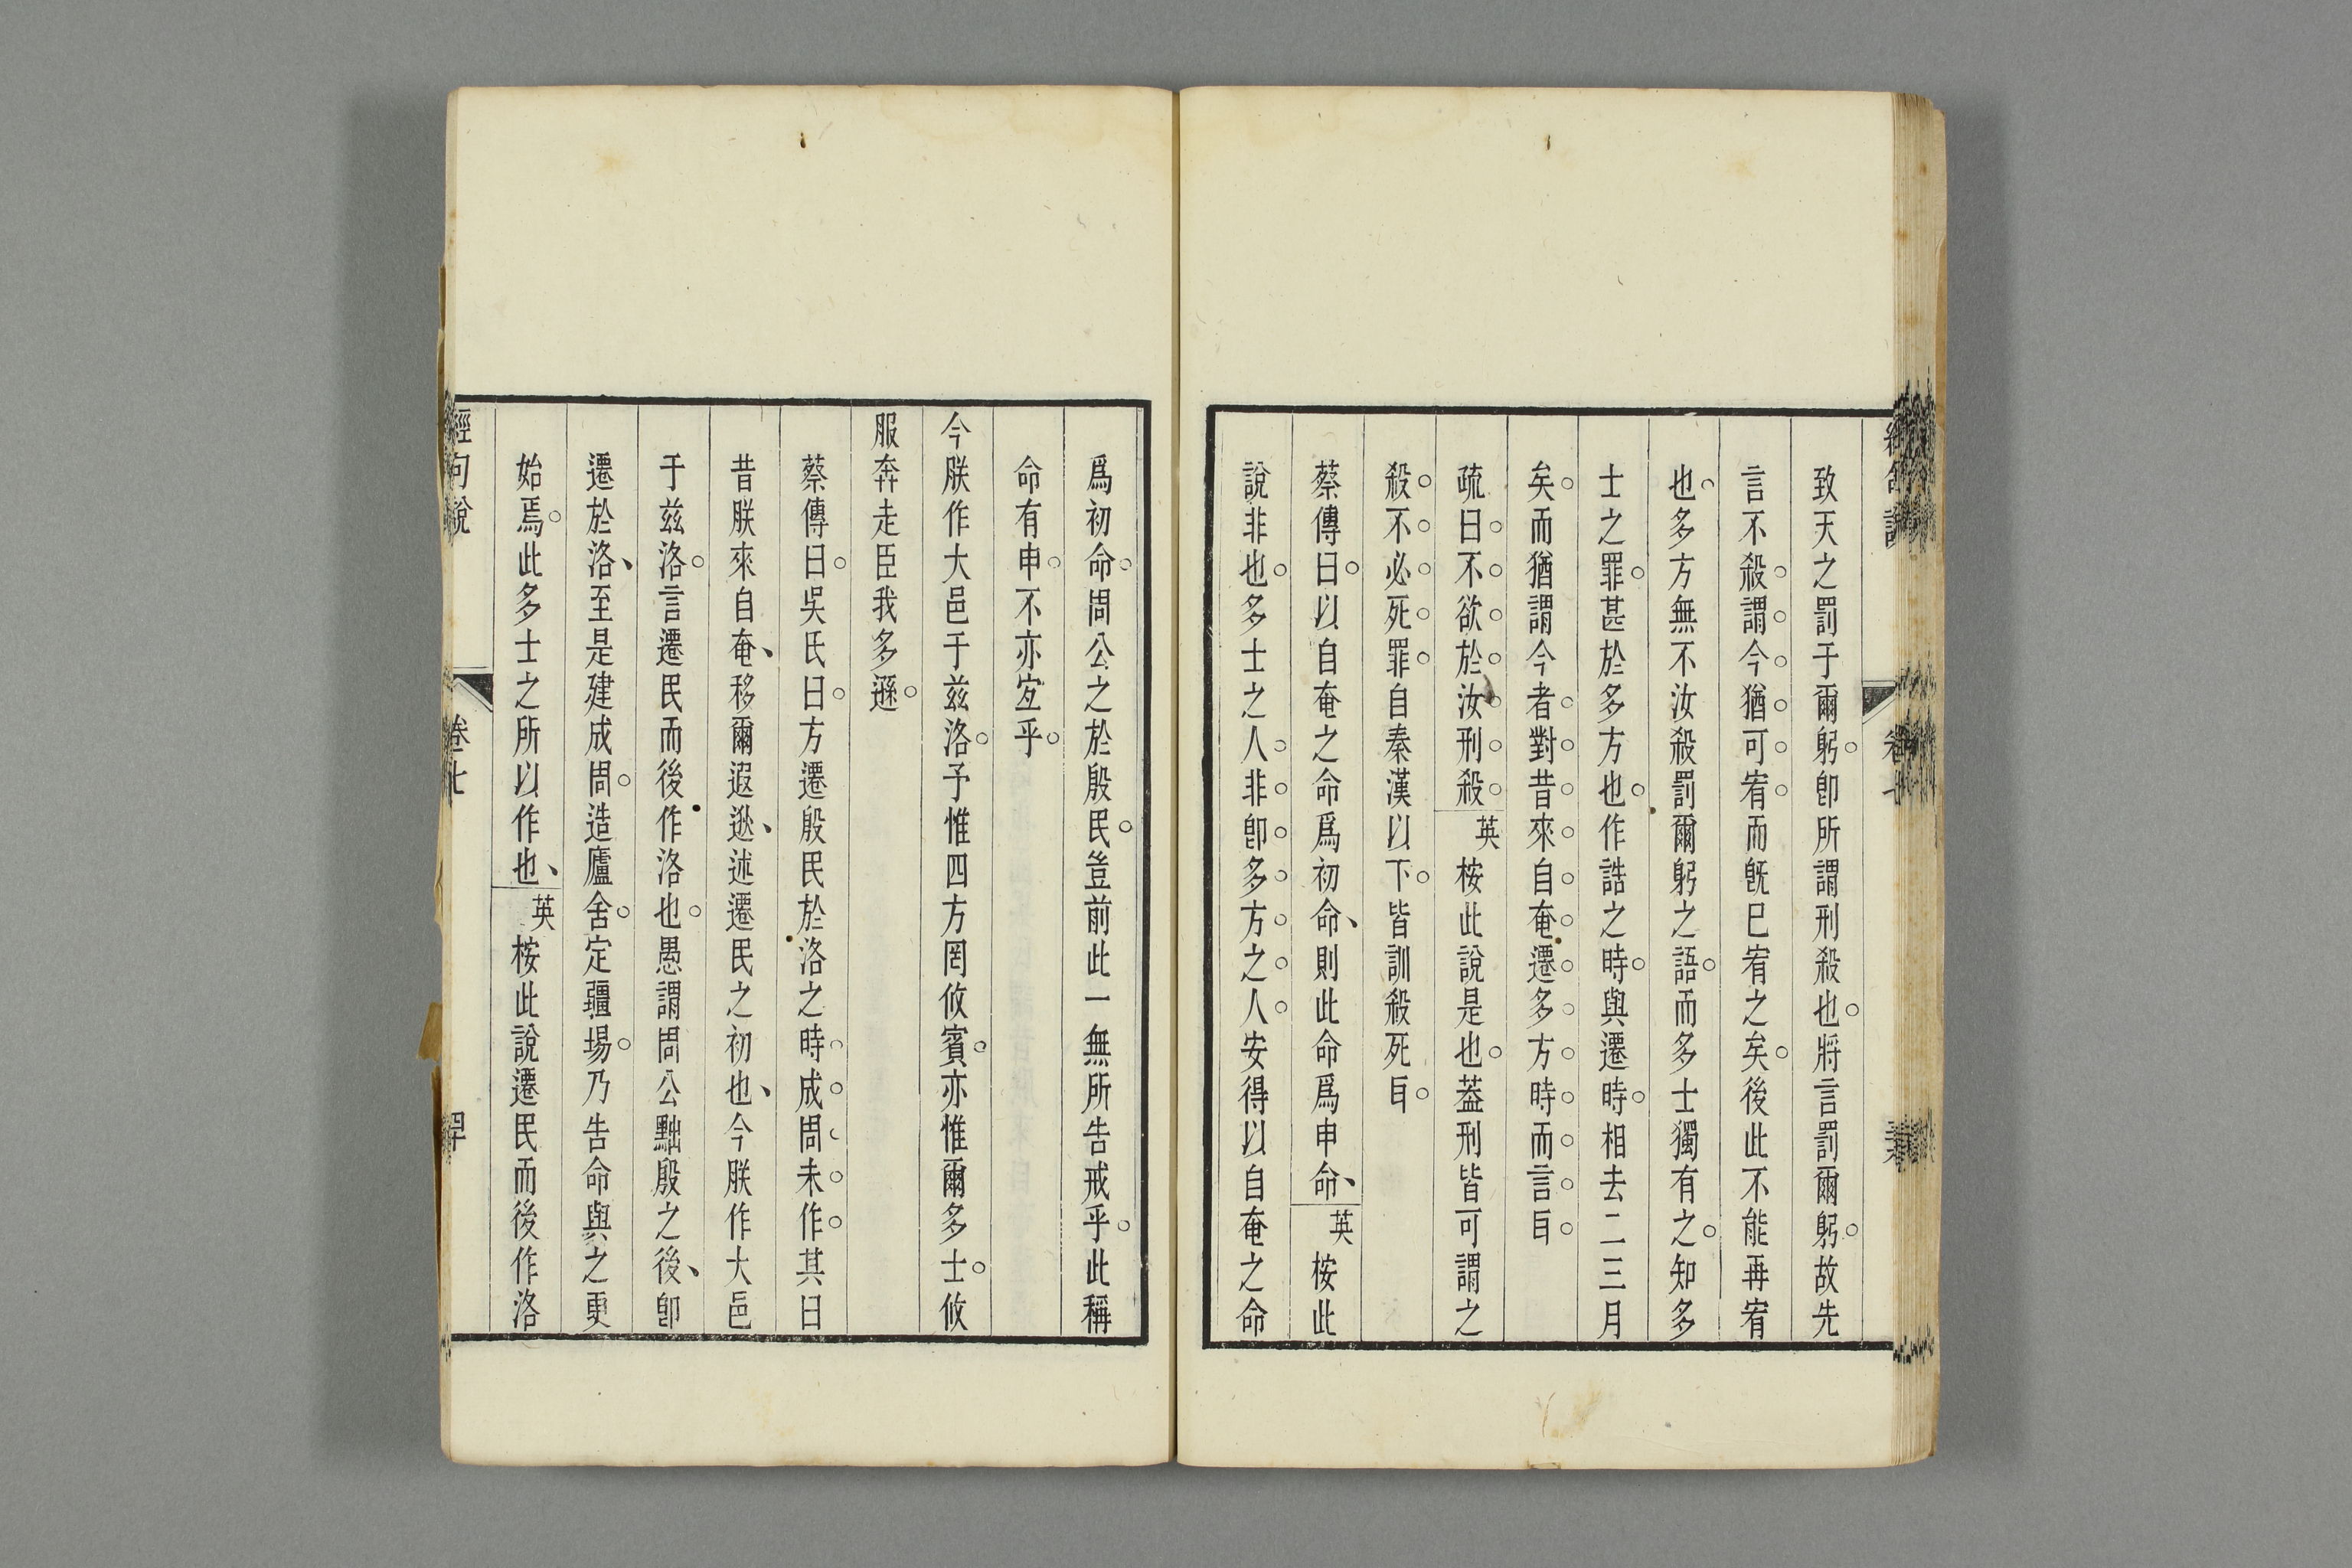 致天之罰于爾躬卽所謂刑殺也將言罰爾躬故先
言不殺謂今猶可宥而旣已宥之矣後此不能再宥
也多方無不汝殺罰爾躬之語而多士獨有之知多
士之罪甚於多方也作誥之時與遷時相去二三月
矣而猶謂今者對昔來自奄遷多方時而言㠯
疏曰不欲於汝刑殺英桉此說是也葢刑皆可謂之
殺不必死罪自秦漢以下皆訓殺死㠯
蔡傳曰以自奄之命爲初命則此命爲申命英桉此
說非也多士之人非卽多方之人安得以自奄之命
爲初命周公之於殷民豈前此一無所告戒乎此稱
命有申不亦宐乎
今朕作大邑于茲洛予惟四方罔攸賓亦惟爾多士攸
服奔走臣我多遜
蔡傳曰吳氏曰方遷殷民於洛之時成周未作其曰
昔朕來自奄移爾遐逖述遷民之初也今朕作大邑
于茲洛言遷民而後作洛也愚謂周公黜殷之後卽
遷於洛至是建成周造廬舍定疆埸乃告命與之更
始焉此多士之所以作也英桉此說遷民而後作洛
經句說 卷七